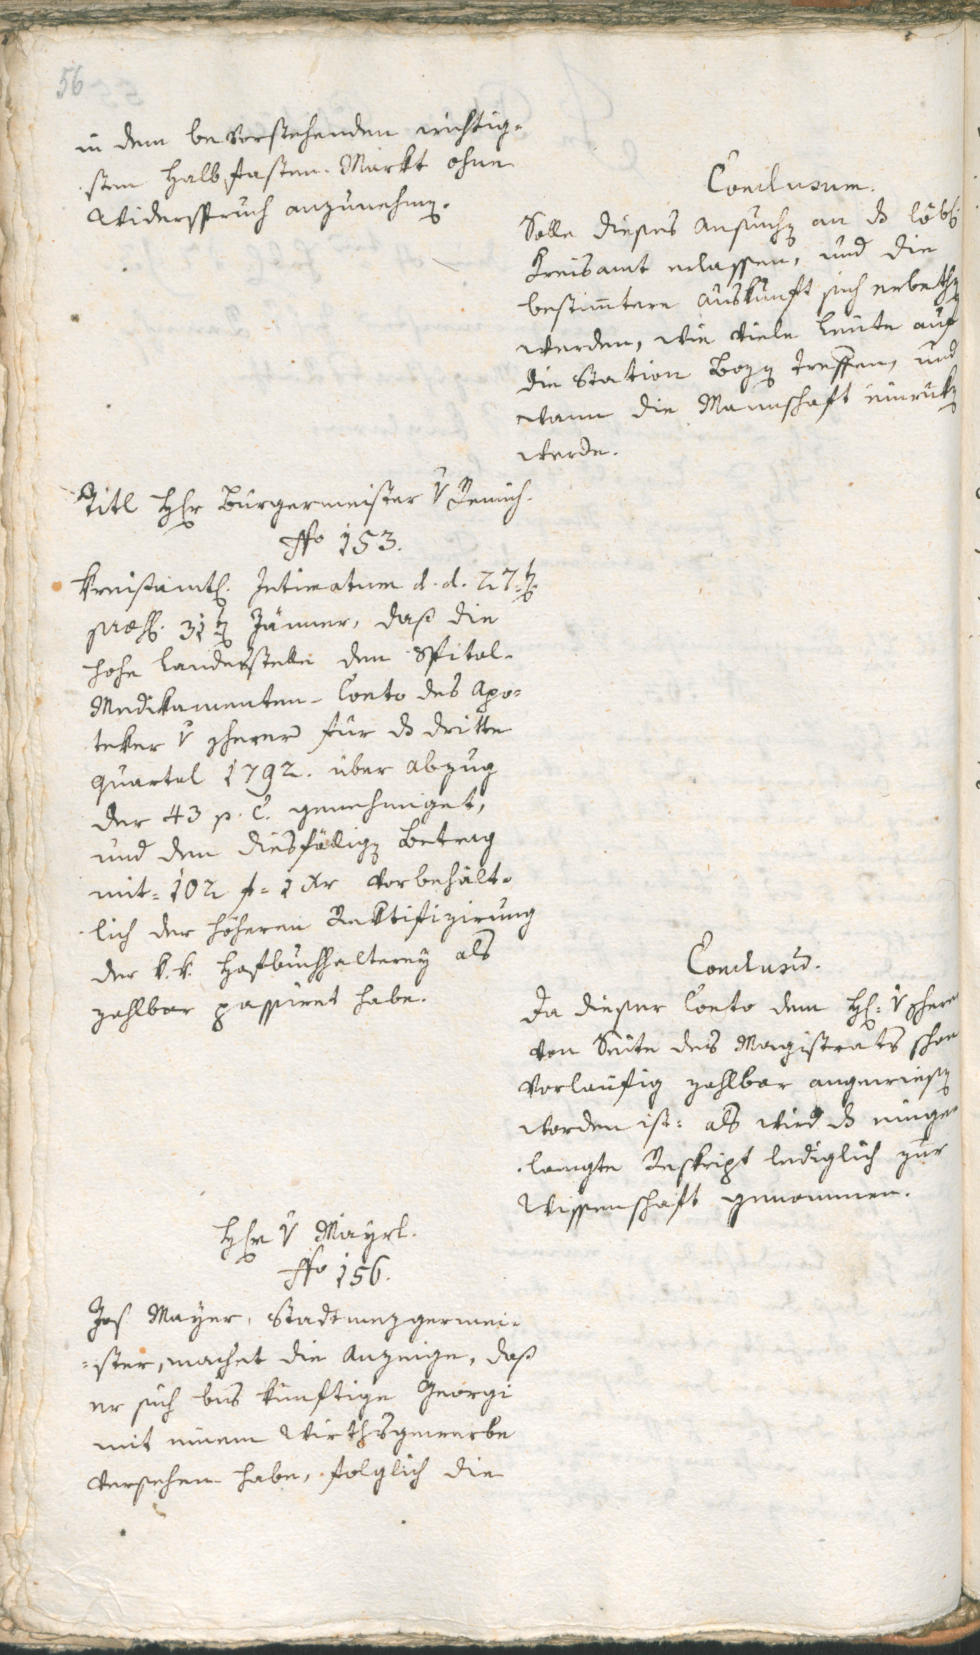 56
in dem bevorstehenden wichtig-
sten Halbfasten-Markt ohne
Widerspruch anzunehmen.
Conclusum.
Solle dieses Ansuchen an das löbl:
Kreisamt erlassen, und die
bestimtere Auskunft sich erbethen
werden, wie viele Leute auf
die Station Bozen treffen, und
wann die Mannschaft einruken
werde.
Titl Hhr Bürgermeister v Remich.
Nro 153.
Kreisamtl. Intimatum d. d. 27ten
præs. 31ten Jänner, daß die
hohe Landesstelle den Spital-
Medikamenten-Conto des Apo-
teker v
für das dritte
Quartal 1792. über Abzug
der 43 p. C. genehmiget,
und den diesfälligen Betrag
mit = 102 f = 1 Xr vorbehält-
lich der höheren Rektifizirung
der k. k. Hofbuchhalterey als
zahlbar passiret habe.
Conclusum.
Da dieser Conto dem H: v
von Seite des Magistrats schon
vorlaufig zahlbar angewiesen
worden ist: als wird das einge-
langte Reskript lediglich zur
Wissenschaft genommen.
Hhr v Mayrl.
Nro 156.
Jos Mayer, Stadtmezgermei-
ster, machet die Anzeige, daß
er sich bis künftige Georgi
mit einem Wirthsgewerbe
versehen habe, folglich die